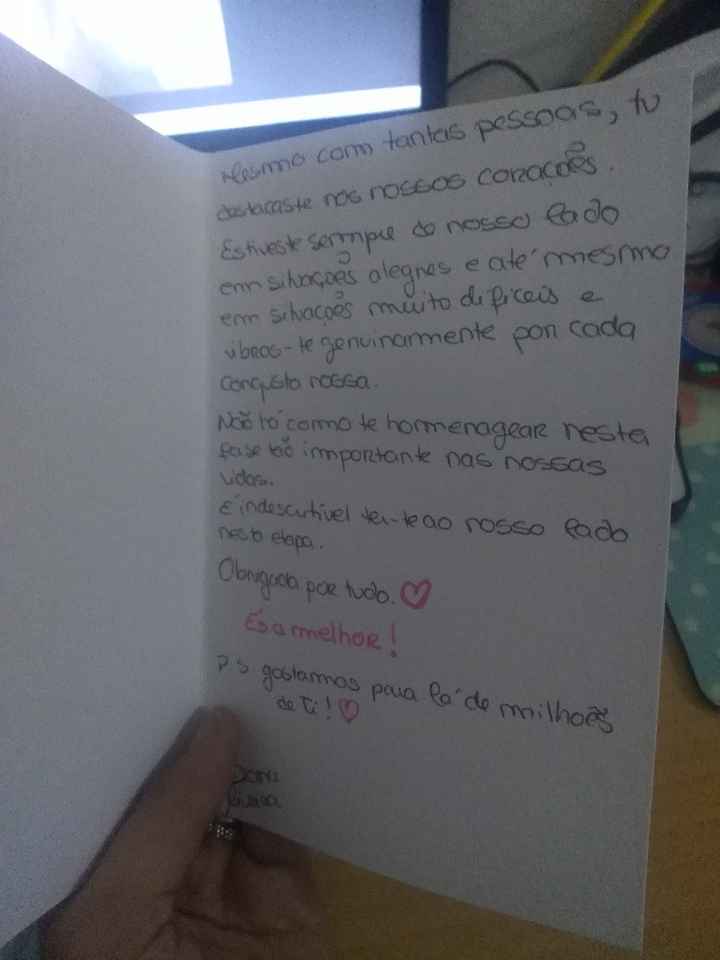 Mesmo com tantas pessoas, tu
destacaste nos nossos corações.
Estiveste sempre do nosso lado
em situações alegres e até mesmo
em situações muito dificeis e
vibras-te genuinamente por cada
conquista nossa.
Não há como te homenagear nesta
fase tão importante nas nossas
vidas.
É indescutível ter-te ao nosso lado
nesta etapa.
Obrigada por tudo. ♡
És a melhor!
PS gostamos para lá de milhões
de Ti! ♡